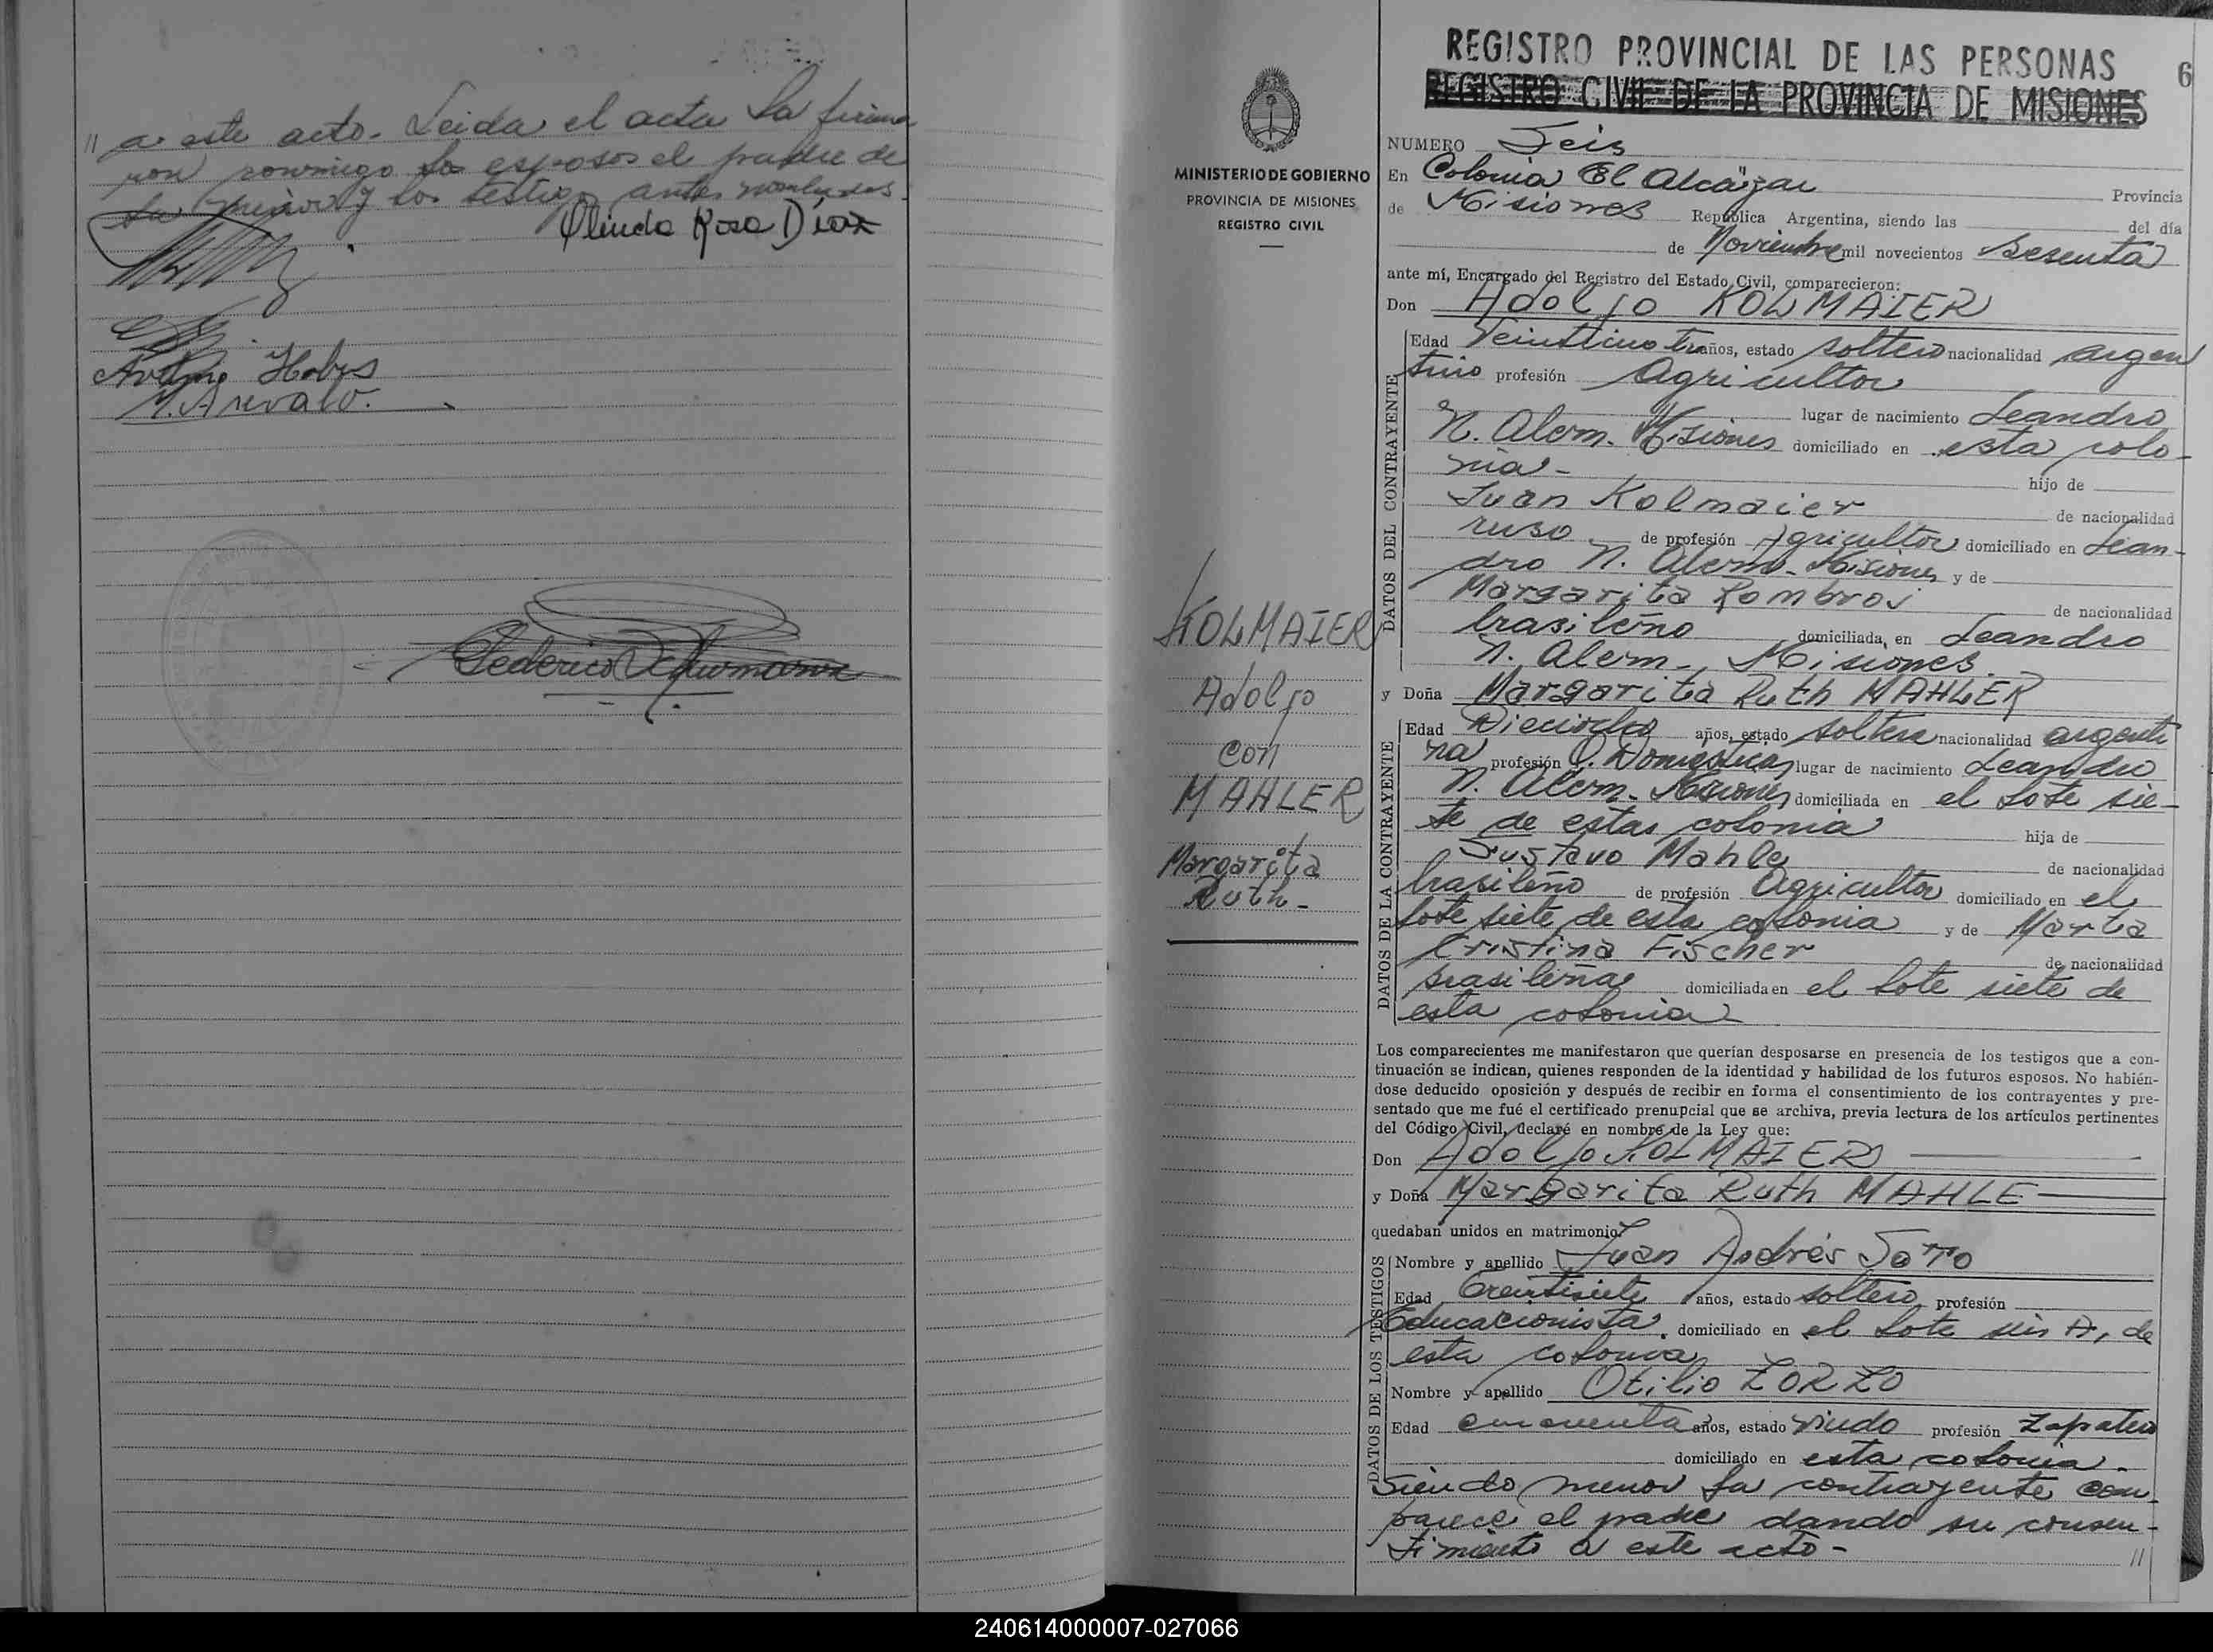 // a este acto. Leida el acta la firma
ron conmigo los esposos el padre de
la menor y los testigos antes nombrados.
Olinda Rosa Díaz
Avelino
M. Arevalo.
Federico Schurmann
MINISTERIO DE GOBIERNO
PROVINCIA DE MISIONES
REGISTRO CIVIL
KOLMAIER
Adolfo
con
MAHLER
Margarita
Ruth-
REGISTRO PROVINCIAL DE LAS PERSONAS
REGISTRO CIVIL DE LA PROVINCIA DE MISIONES
6
NUMERO Seis
En Colonia El Alcázar Provincia
de Misiones República Argentina, siendo las del día
de Noviembre mil novecientos sesenta
ante mí, Encargado del Registro del Estado Civil, comparecieron:
Don Adolfo KOLMAIER
DATOS DEL CONTRAYENTE
Edad años, estado soltero nacionalidad argen
tino profesión Agricultor
lugar de nacimiento Leandro
N. Alem. Misiones domiciliado en esta colo-
nia- hijo de
Juan Kolmaier de nacionalidad
ruso de profesión Agricultor domiciliado en Lean-
dro N. Alem- Misiones y de
Margarita Rombroi de nacionalidad
brasileño domiciliada en Leandro
N. Alem-, Misiones
y Doña Margarita Ruth MAHLER
DATOS DE LA CONTRAYENTE
Edad Dieciocho años, estado soltera nacionalidad argenti
na profesión Q. Domésticos lugar de nacimiento Leandro
N. Alem- Misiones domiciliada en el lote sie-
te de esta colonia hija de
Gustavo Mahle de nacionalidad
brasileño de profesión Agricultor domiciliado en el
lote siete de esta colonia y de Marta
Cristina Fischer de nacionalidad
brasileña domiciliada en el lote siete de
esta colonia
Los comparecientes me manifestaron que querían desposarse en presencia de los testigos que a con-
tinuación se indican, quienes responden de la identidad y habilidad de los futuros esposos. No habién-
dose deducido oposición y después de recibir en forma el consentimiento de los contrayentes y pre-
sentado que me fué el certificado prenupcial que se archiva, previa lectura de los artículos pertinentes
del Código Civil, declaré en nombre de la Ley que:
Don Adolfo KOLMAIER
y Doña Margarita Ruth MAHLE
quedaban unidos en matrimonio
DATOS DE LOS TESTIGOS
Nombre y apellido Juan Andrés Soto
Edad Treintisiete años, estado soltero profesión
Educacionista, domiciliado en el lote seis A, de
esta colonia
Nombre y apellido Otilio ZORZO
Edad cincuenta años, estado viudo profesión Zapatero
domiciliado en esta colonia.
Siendo menor la contrayente com-
parece el padre dando su consen-
timiento a este acto- //
240614000007-027066